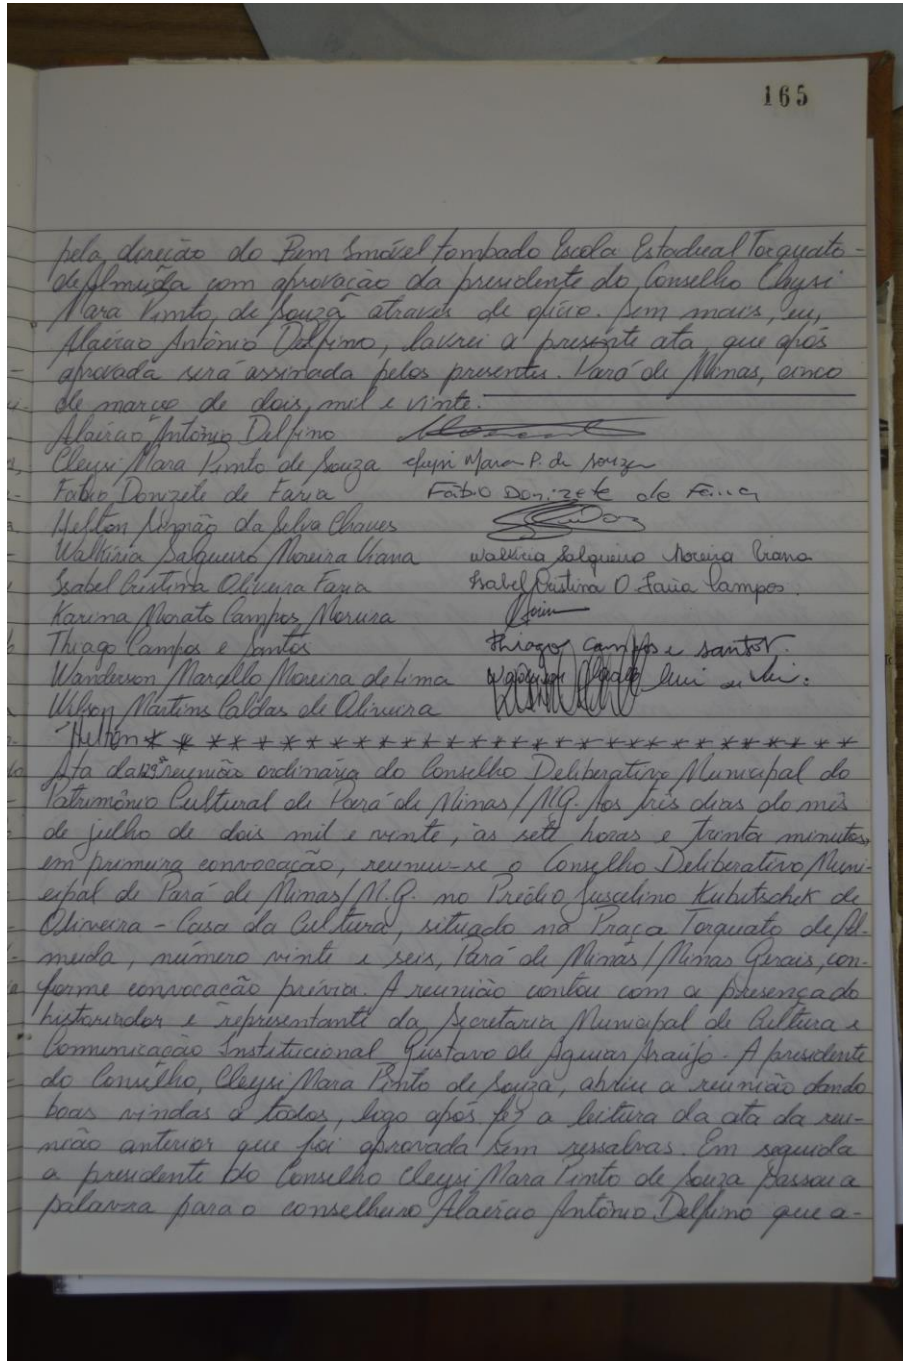 165
pela direção do Bem Imóvel tombado Escola Estadual Torquato
de Almeida com aprovação da presidente do Conselho Cleysi
Mara Pinto de Souza através de ofício. Sem mais, eu,
Alaércio Antônio Delfino, lavrei a presente ata, que após
aprovada será assinada pelos presentes. Pará de Minas, cinco
de março de dois mil e vinte.
Alaércio Antônio Delfino
Cleysi Mara Pinto de Souza Cleysi Mara P. de Souza
Fabio Donizete de Faria Fábio Donizete de Faria
Helton Simão da Silva Chaves
Walkíria Salgueiro Moreira Viana Walkiria Salgueiro Moreira Viana
Isabel Cristina Oliveira Faria Isabel Cristina O Faria Campos.
Karina Morato Campos Moreira
Thiago Campos e Santos Thiago Campos e Santos.
Wanderson Marcello Moreira de Lima
Wilson Martins Caldas de Oliveira
Helton * * * * * * * * * * * * * * * * * * * * * * * * * * *
Ata da 129ª reunião ordinária do Conselho Deliberativo Municipal do
Patrimônio Cultural de Pará de Minas/MG. Aos três dias do mês
de julho de dois mil e vinte, às sete horas e trinta minutos,
em primeira convocação, reuniu-se o Conselho Deliberativo Muni-
cipal de Pará de Minas/M.G. no Prédio Juscelino Kubitschek de
Oliveira - Casa da Cultura, situado na Praça Torquato de Al-
meida, número vinte e seis, Pará de Minas/Minas Gerais, con-
forme convocação prévia. A reunião contou com a presença do
historiador e representante da Secretaria Municipal de Cultura e
Comunicação Institucional Gustavo de Aguiar Araújo. A presidente
do Conselho, Cleysi Mara Pinto de Souza, abriu a reunião dando
boas vindas a todos, logo após fez a leitura da ata da reu-
nião anterior que foi aprovada sem ressalvas. Em seguida
a presidente do Conselho Cleysi Mara Pinto de Souza passou a
palavra para o conselheiro Alaércio Antônio Delfino que a-